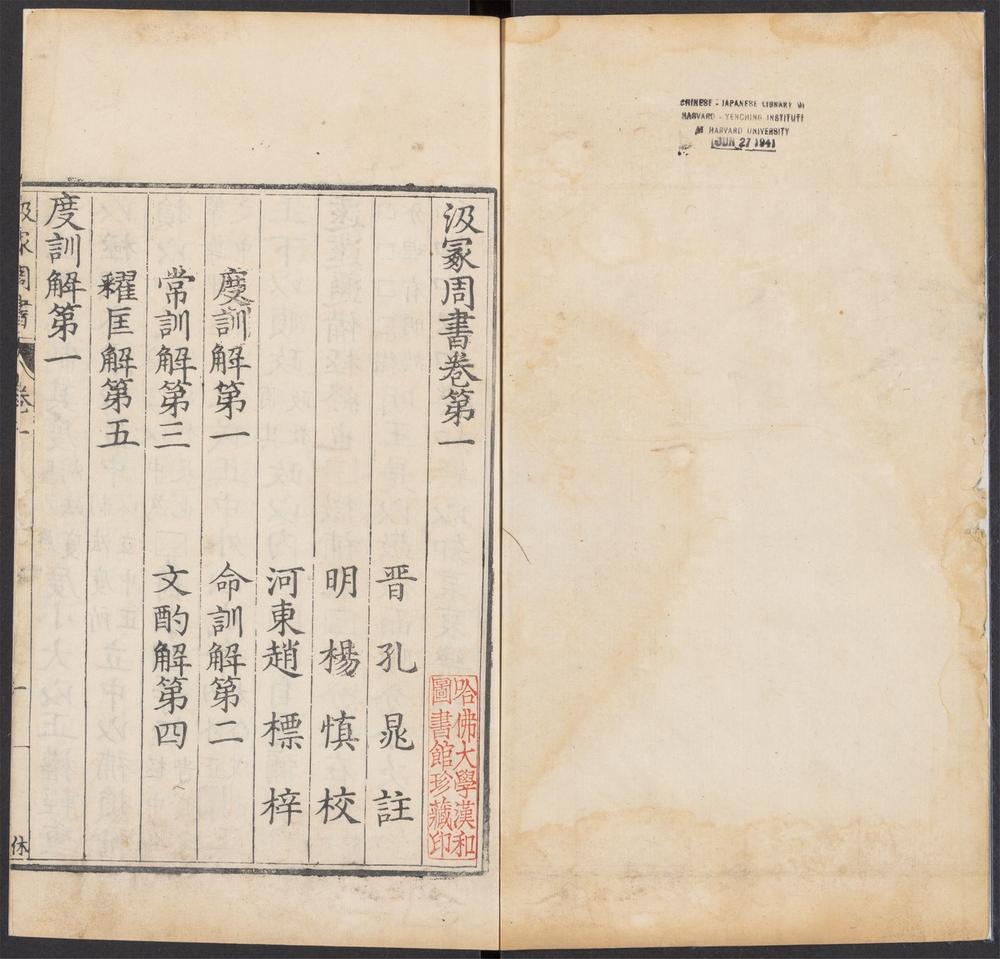 CHINESE - JAPANESE LIBRARY
HARVARD - YENCHING INSTITUTE
HARVARD UNIVERSITY
JUN 27 1941
汲冢周書卷第一
晋孔晁註
明楊慎校
河東趙標梓
度訓解第一 命訓解第二
常訓解第三 文酌解第四
糴匡解第五
度訓解第一
汲冢周書 卷一
一
休
哈佛大學漢和
圖書館珍藏印